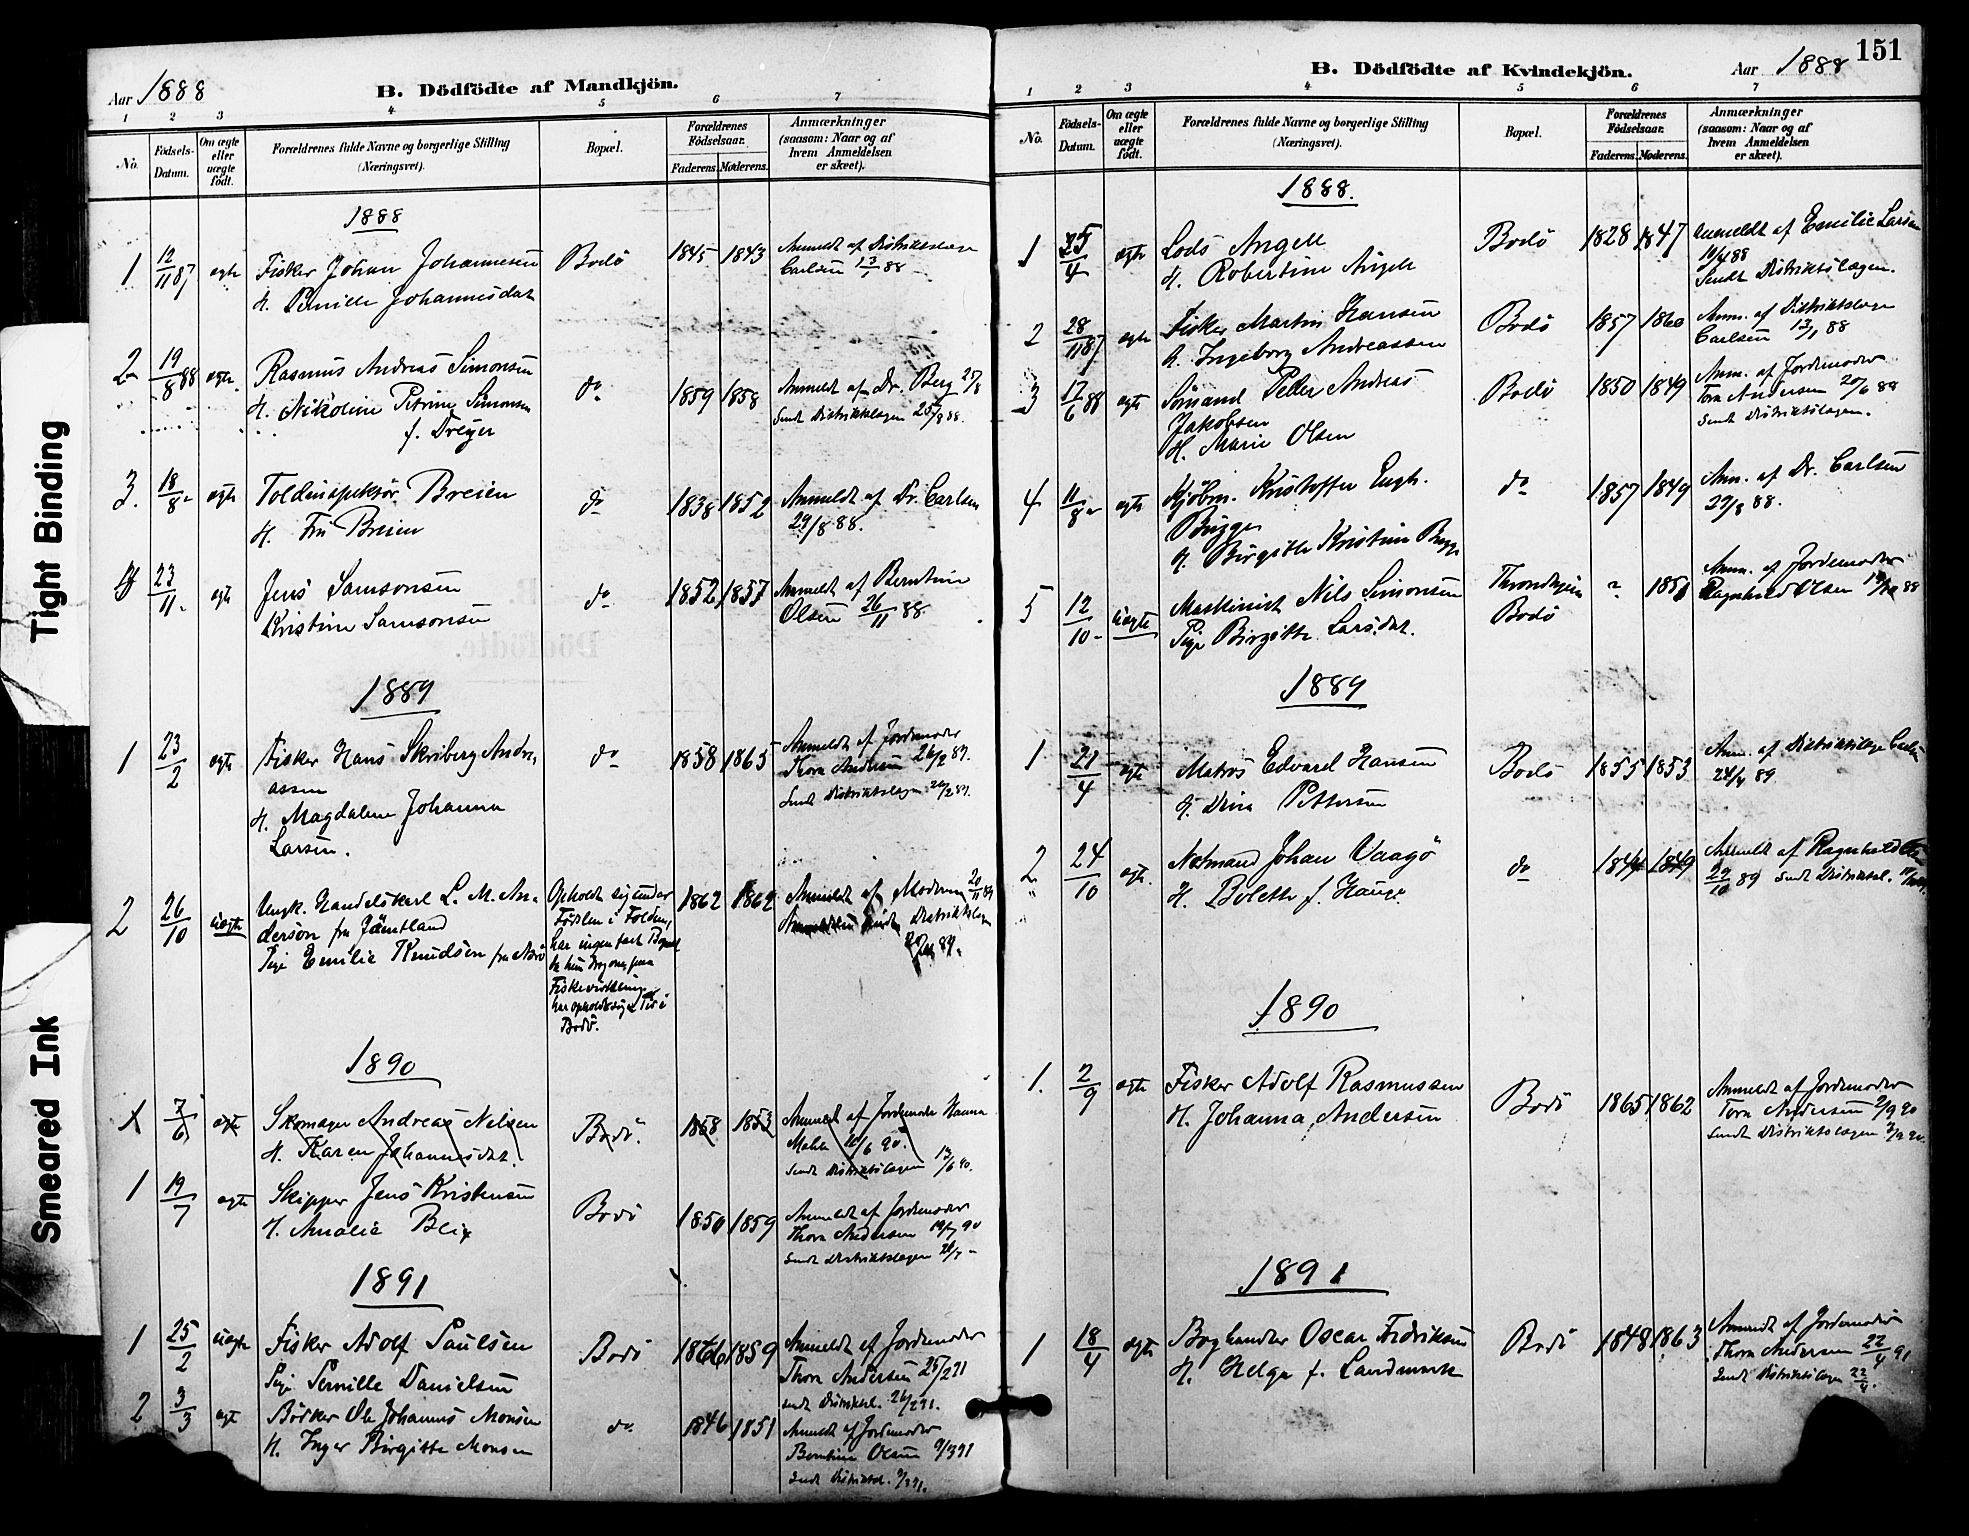 151
Aar 1888
B. Dödfödte af Mandkjön.
1 2 3 4 5 6 7
No.
Födsels-
Datum.
Om ægte
eller
uægte
födt.
Forældrenes fulde Navne og borgerlige Stilling
(Næringsvei).
Bopæl.
Forældrenes
Födselsaar.
Faderens. Moderens.
Anmærkninger
(saasom: Naar og af
hvem Anmeldelsen
er skeet).
1888
1 12/11 87 ægte Fisker Johan Johannesen Bodö 1845 1843 Anmeldt af Distriktslæge
H. Pernille Johannesdat Carlsen 13/1 88
2 19/8 88 ægte Rasmus Andreas Simonsen do 1859 1858 Anmeldt af Dr. Berg 25/8
H. Nikoline Petrine Simonsen Sendt Distriktslægen 25/8 88.
f. Dreyer
3. 18/8 ægte Toldinspektør Breien do 1838 1852 Anmeldt af Dr. Carlsen
H. Fru Breien 29/8 88.
4 23/11 ægte Jens Samsonsen do 1852 1857 Anmeldt af Berntine
Kristine Samsonsen Olsen 26/11 88
1889
1 23/2 ægte Fisker Hans Skriberg Andre- do 1858 1865 Anmeldt af Jordemoder
assen Thora Andersen 26/2 89.
H. Magdalena Johanna Sendt Distriktslægen 26/2 89.
Larsen.
2 26/10 uægte Ungk. Handelskarl L. M. An- Opholdt sig under 1862 Anmeldt af Moderen 20/11 89
derson fra Jämtland Födslen i Folden,
Pige Emilie Knudsen fra har ingen fast Bopæl
Fiskeværk
Bodö.
1890
1 7/6 ægte Skomager Andreas Nilsen Bodö. 1858 1853 Anmeldt af Jordemoder Hanna
H. Karen Johannesdat. 11/6 90.
Sendt Distriktslægen 13/6 90.
1 19/7 ægte Skipper Jens Kristensen Bodö 1850 1859 Anmeldt af Jordemoder
H. Amalie Blix Thora Andersen 19/7 90
Sendt Distriktslægen
1891
1 25/2 uægte Fisker Adolf Paulsen Bodö 1866 1859 Anmeldt af Jordemoder
Pige Pernille Danielsen Thora Andersen 25/2 91
sendt Distriktsl. 26/2 91.
2 3/3 ægte Bödker Ole Johannes Monsen do 1846 1851 Anmeldt af Jordemoder
H. Inger Birgitte Monsen Berntine Olsen 9/3 91
Sendt Distriktsl. 9/3 91.
B. Dödfödte af Kvindekjön.
Aar 1888
1 2 3 4 5 6 7
No.
Födsels-
Datum.
Om ægte
eller
uægte
födt.
Forældrenes fulde Navne og borgerlige Stilling
(Næringsvei).
Bopæl.
Forældrenes
Födselsaar.
Faderens. Moderens.
Anmærkninger
(saasom: Naar og af
hvem Anmeldelsen
er skeet).
1888.
1 ægte Lods Angell Bodö 1828 1847 Anmeldt af Emilie Larsen
H. Robertine Angell
Sendt Distriktslægen.
2 28/11 87 ægte Fisker Martin Hansen Bodö 1857 1860 Anm. af Distriktslæge
H. Ingeborg Andreassen Carlsen 13/1 88
3 17/6 88 ægte Sömand Peder Andreas Bodö 1850 1849 Anm. af Jordemoder
Jakobsen Tora Andersen 20/6 88
H. Marie Olsen Sendt Distriktslægen.
4 11/8 ægte Kjöbm. Kristoffer Engh. do 1857 1849 Anm. af Dr. Carlsen
Bugge 29/8 88.
H. Birgitte Kristine Bugge
5 12/10 uægte Maskinist Nils Simonsen Throndhjem ? 1851 Anm. af Jordemoder
Pige Birgitte Larsdat. Bodö Ragnhild Olsen
1889
1 21/4 ægte Matros Edvard Hansen Bodö 1855 1853 Anm. af Distriktslæge Carlsen
H. Petersen 24/4 89
2 24/10 ægte. Notmand Johan Vaagö do 1844 1849 Anmeldt af Ragnhild
H. Bolette f. Hauge 29/10 89 Sendt Distriktsl.
1890
1. 2/9 ægte Fisker Adolf Rasmussen Bodö 1865 1862 Anmeldt af Jordemoder
H. Johanna Andersen Tora Andersen 2/9 90
Sendt Distriktslægen
1891
1 18/4 ægte Boghandler Oscar Fredriksen Bodö 1848 1863 Anmeldt af Jordemoder
H. Helga f. Landmark Thora Andersen 22/4 91
Sendt Distriktslægen 22/4.
Tight Binding
Smeared Ink